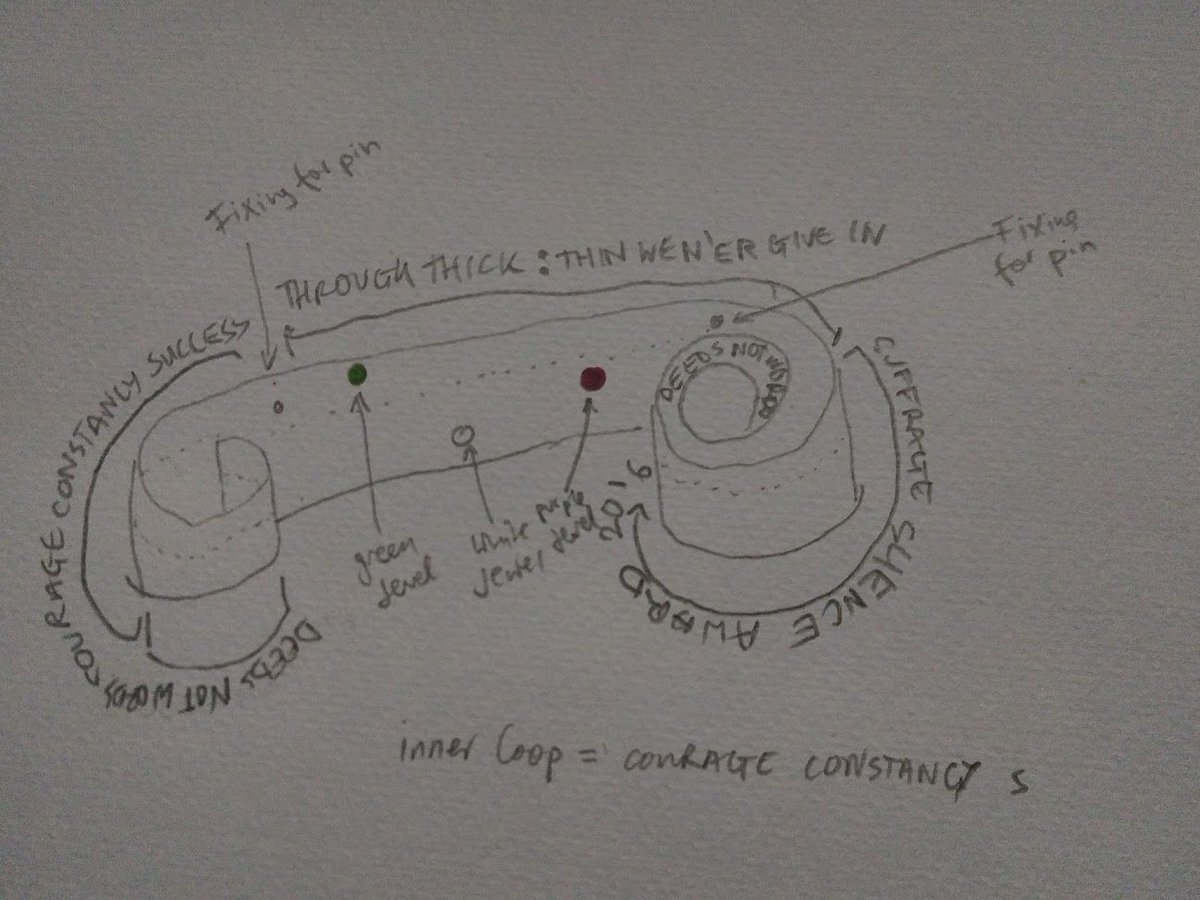 Fixing for pin
THROUGH THICK : THIN WEN'ER GIVE IN
Fixing
for pin
COURAGE CONSTANCY SUCCESS
DEEDS NOT WORDS
DEEDS NOT WORDS
SUFFRAGE SCIENCE AWARD
2016
green
Jewel
White
Jewel
purple
Jewel
inner loop = COURAGE CONSTANCY S